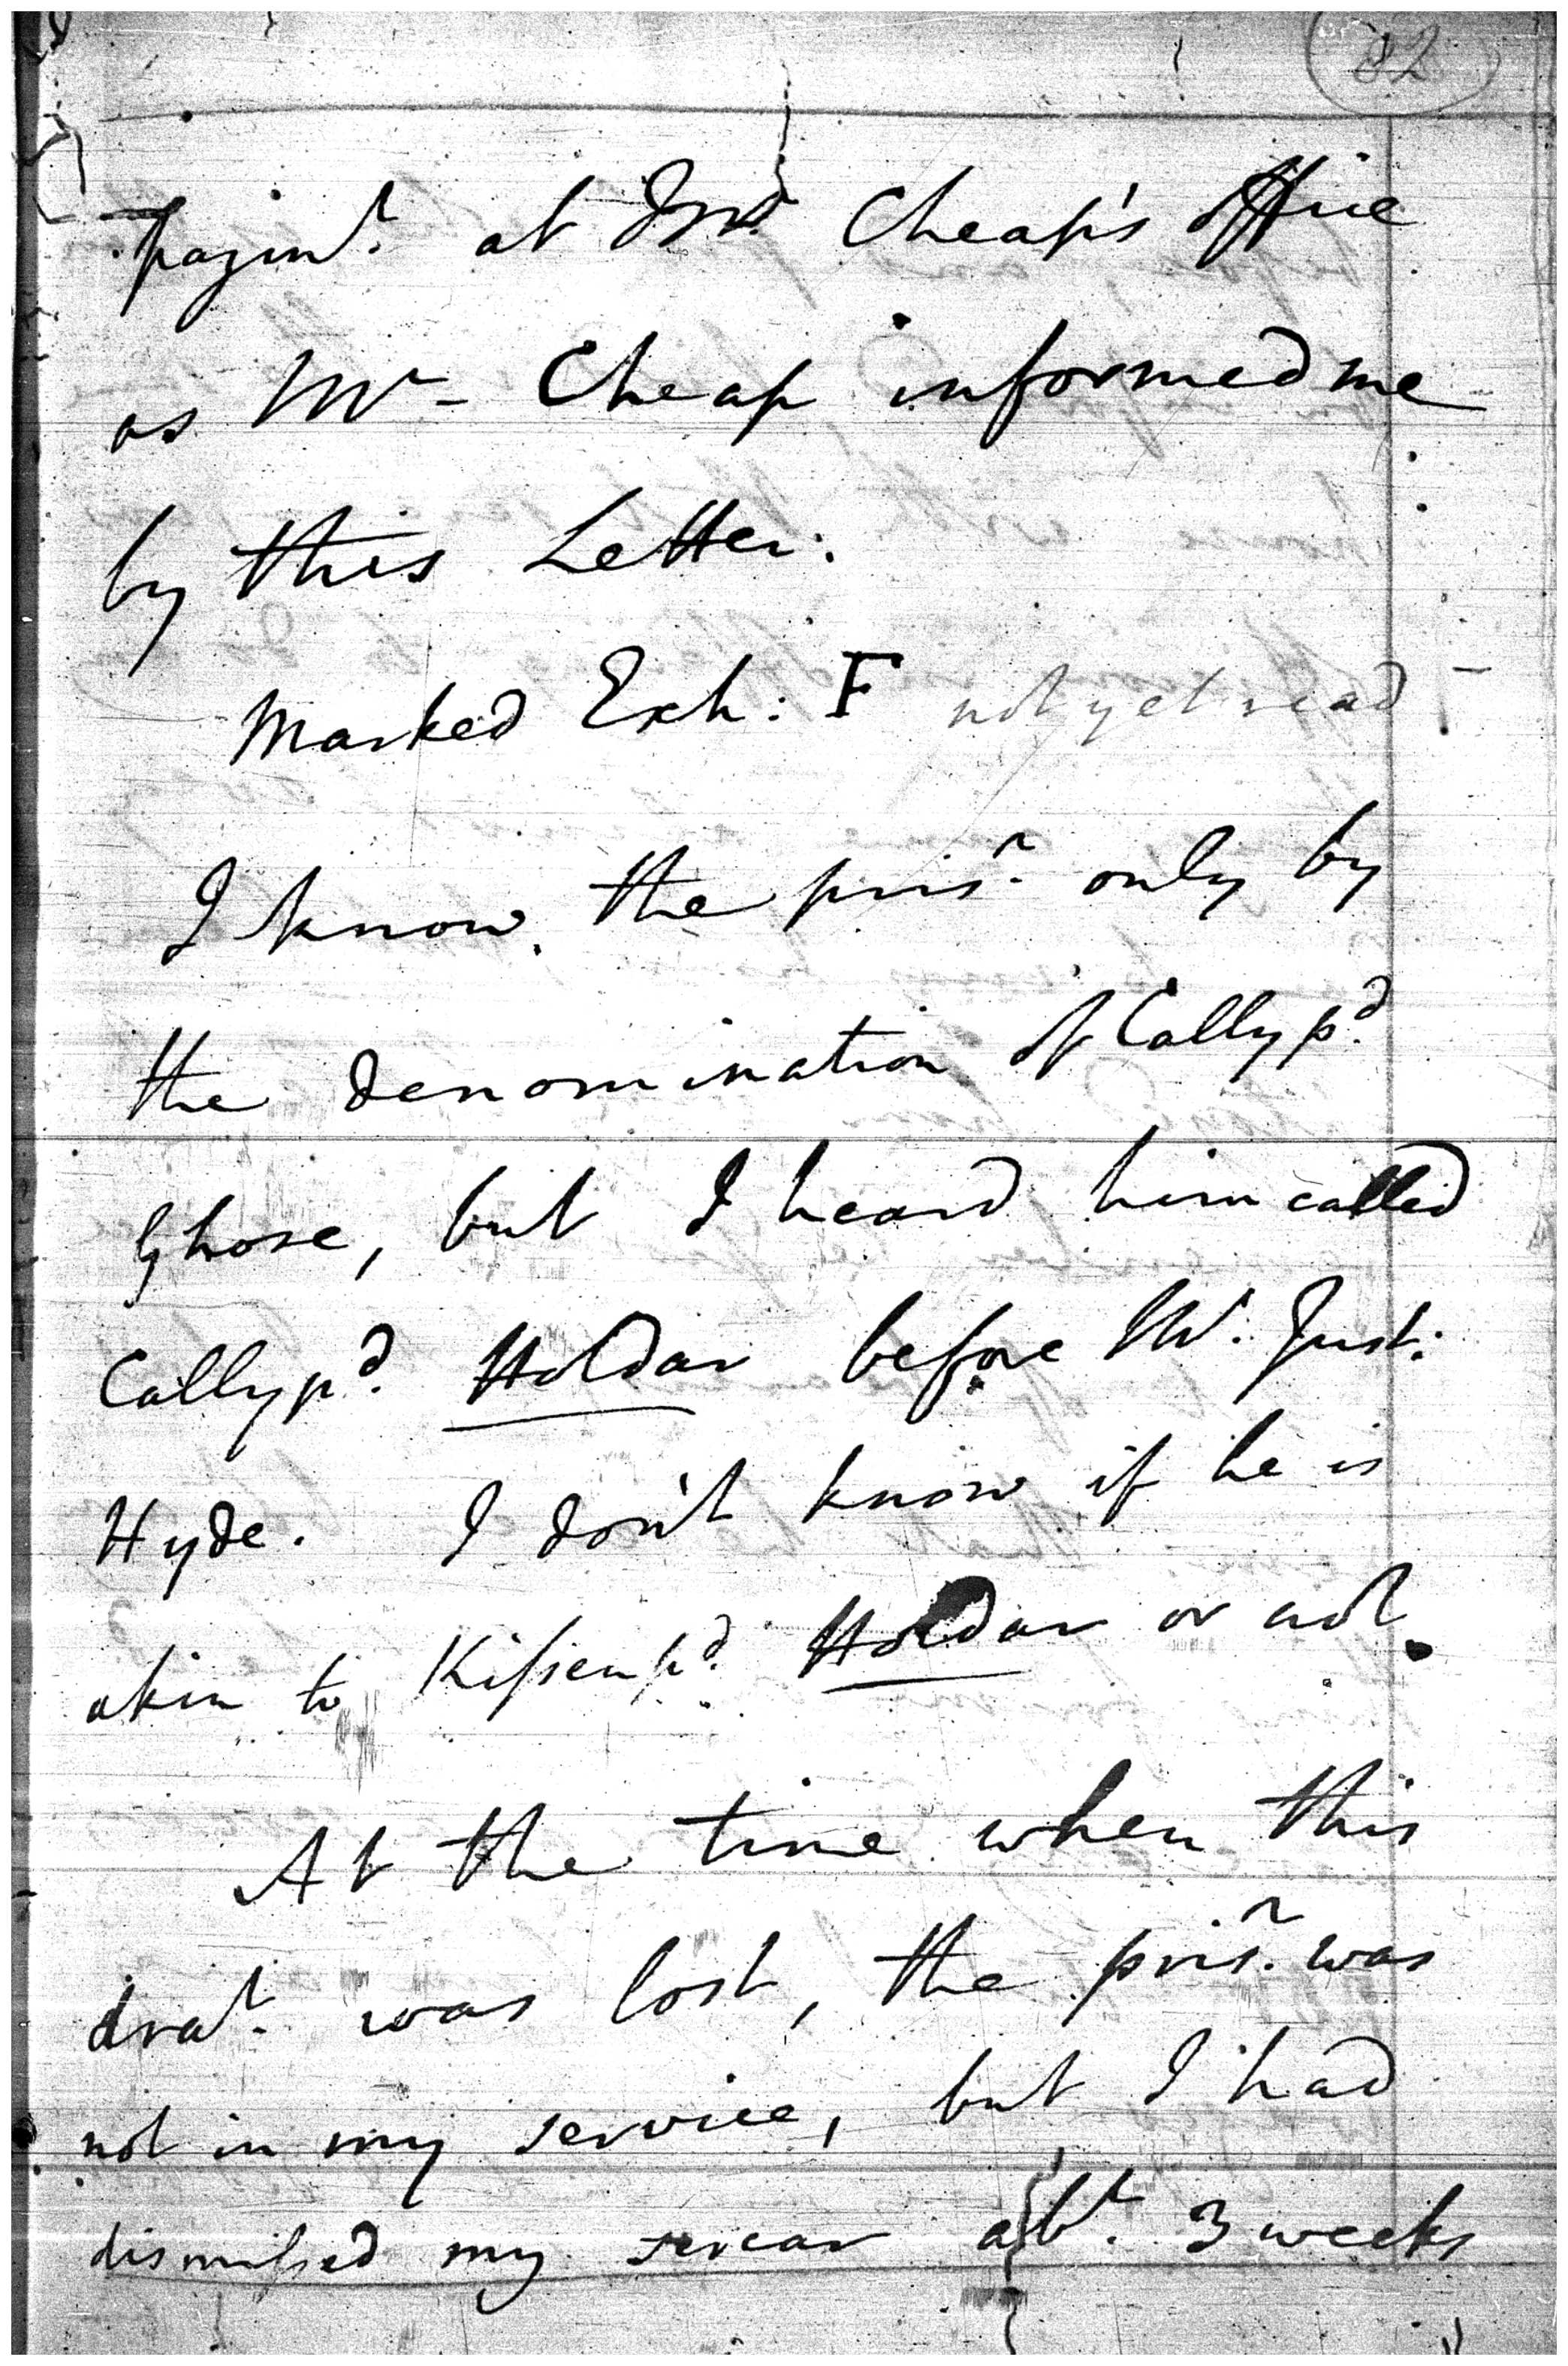 82
paym.t at Mr. Cheap's Office
as Mr. Cheap informed me
by this Letter.
Marked Exh: F not yet read
I know the pris.r only by
the denomination of Cally p.d
Ghose, but I heard him called
Cally p.d Holdar before Mr. Just:
Hyde. I don't know if he is
akin to Kissenp.d Holdar or not.
At the time when this
dra.t was lost, the pris.r was
not in my service, but I had
dismissed my sircar ab.t 3 weeks